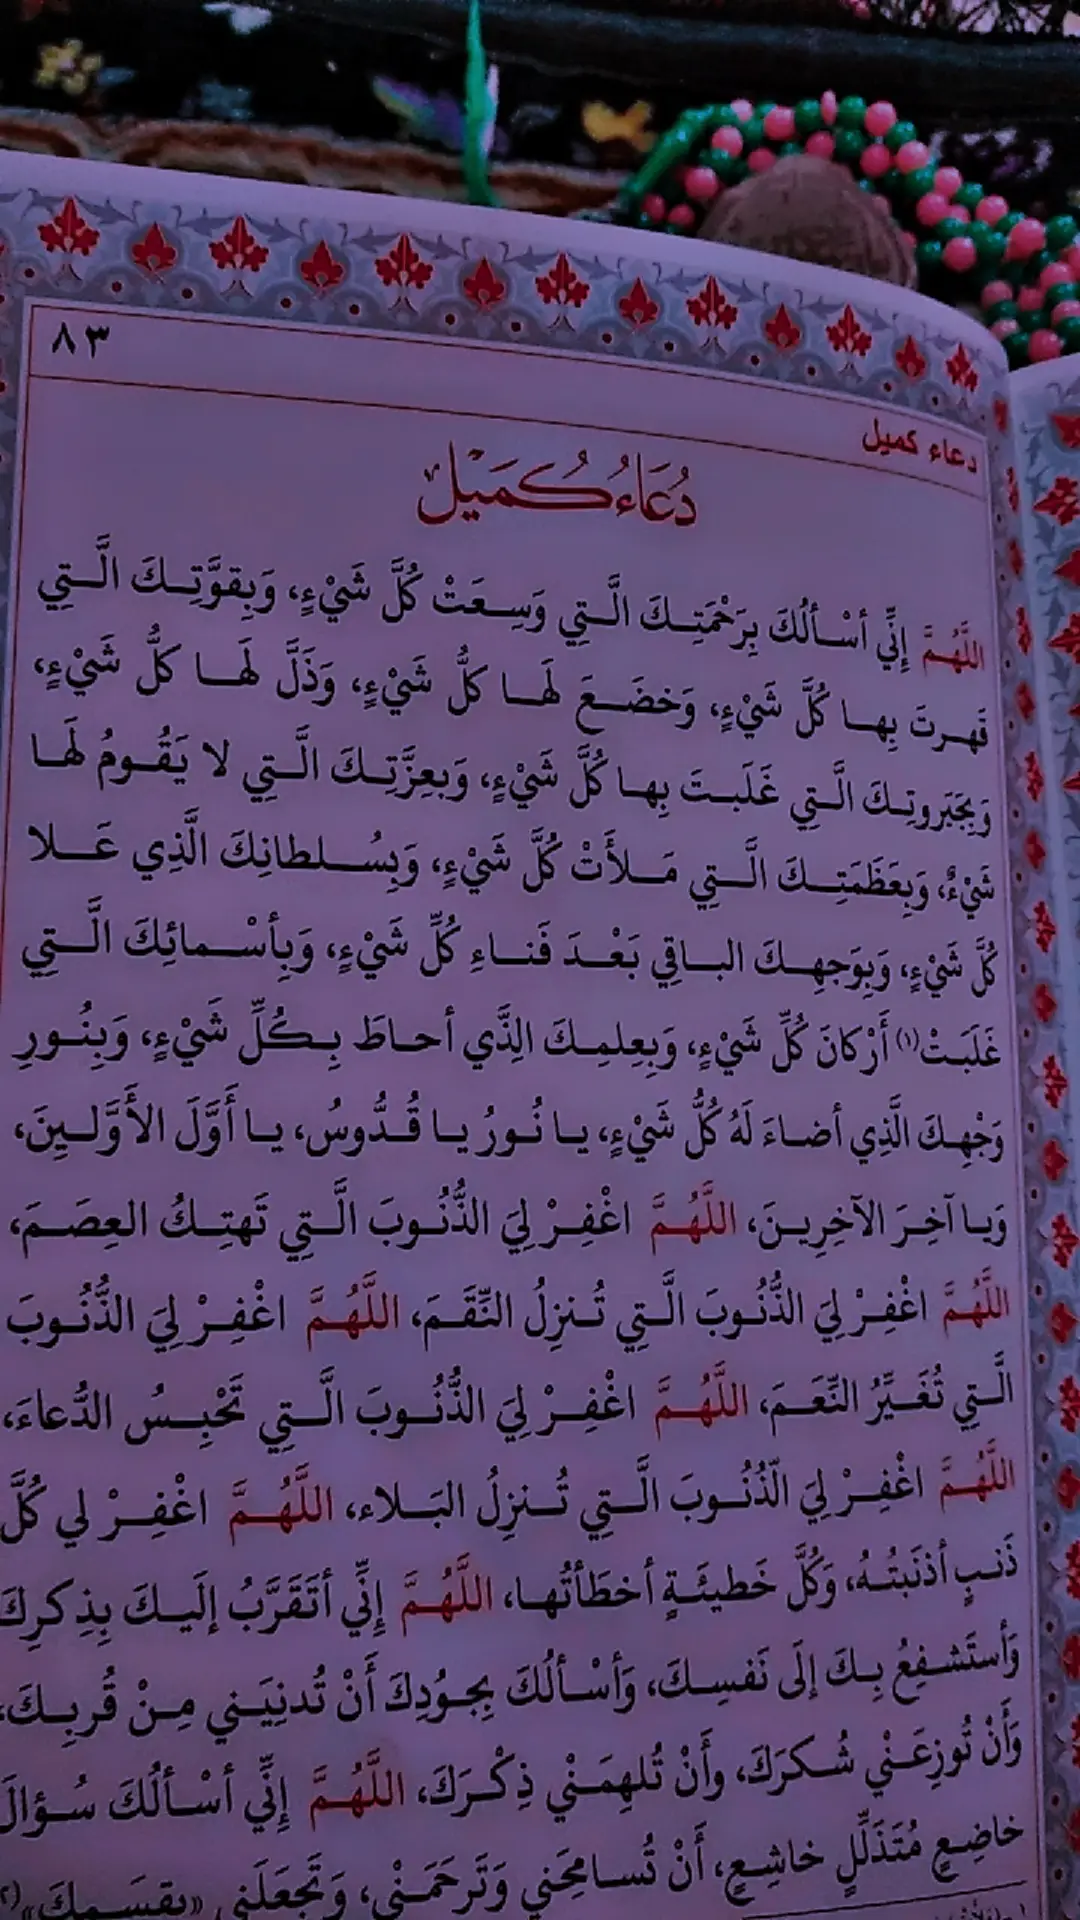 ٨٣
دعاء كميل
دُعَاءُ كُمَيْل
اللَّهُمَّ إِنِّي أسْألُكَ بِرَحْمَتِكَ الَّتِي وَسِعَتْ كُلَّ شَيْءٍ، وَبِقوَّتِكَ الَّتِي
قَهرتَ بِها كُلَّ شَيْءٍ، وَخضَعَ لَها كلُّ شَيْءٍ، وَذَلَّ لَها كلُّ شَيْءٍ،
وَبِجَبَروتِكَ الَّتِي غَلَبتَ بِها كُلَّ شَيْءٍ، وَبِعِزَّتِكَ الَّتِي لا يَقُومُ لَها
شَيْءٌ، وَبِعَظَمَتِكَ الَّتِي مَلأَتْ كُلَّ شَيْءٍ، وَبِسُلطانِكَ الَّذِي عَلا
كُلَّ شَيْءٍ، وَبِوَجهِكَ الباقِي بَعْدَ فَناءِ كُلِّ شَيْءٍ، وَبِأسْمائِكَ الَّتِي
غَلَبَتْ(١) أَرْكانَ كُلِّ شَيْءٍ، وَبِعِلمِكَ الِذَّي أحاطَ بِكُلِّ شَيْءٍ، وَبِنُورِ
وَجْهِكَ الَّذِي أضاءَ لَهُ كُلُّ شَيْءٍ، يا نُورُ يا قُدُّوسُ، يا أَوَّلَ الأَوَّلِينَ،
وَيا آخِرَ الآخِرِينَ، اللَّهُمَّ اغْفِرْ لِيَ الذُّنُوبَ الَّتِي تَهتِكُ العِصَمَ،
اللَّهُمَّ اغْفِرْ لِيَ الذُّنُوبَ الَّتِي تُنزِلُ النِّقَمَ، اللَّهُمَّ اغْفِرْ لِيَ الذُّنُوبَ
الَّتِي تُغَيِّرُ النِّعَمَ، اللَّهُمَّ اغْفِرْ لِيَ الذُّنُوبَ الَّتِي تَحْبِسُ الدُّعاءَ،
اللَّهُمَّ اغْفِرْ لِيَ الّذُنُوبَ الَّتِي تُنزِلُ البَلاء، اللَّهُمَّ اغْفِرْ لي كُلَّ
ذَنبٍ أذنَبتُهُ، وَكُلَّ خَطيئَةٍ أخطَأتُها، اللَّهُمَّ إِنِّي أتَقَرَّبُ إلَيكَ بِذِكرِكَ
وَأستَشفِعُ بِكَ إلَى نَفسِكَ، وَأسْألُكَ بِجوُدِكَ أَنْ تُدنِيَني مِنْ قُربِكَ،
وَأَنْ تُوزِعَنْي شُكرَكَ، وأَنْ تُلهِمَنْي ذِكْرَكَ، اللَّهُمَّ إِنِّي أسْألُكَ سُؤالَ
خاضِعٍ مُتَذَلِّلٍ خاشِعٍ، أَنْ تُسامِحَني وَتَرحَمَنْي، وَتَجعَلَني «بِقسَمِكَ»(٢)